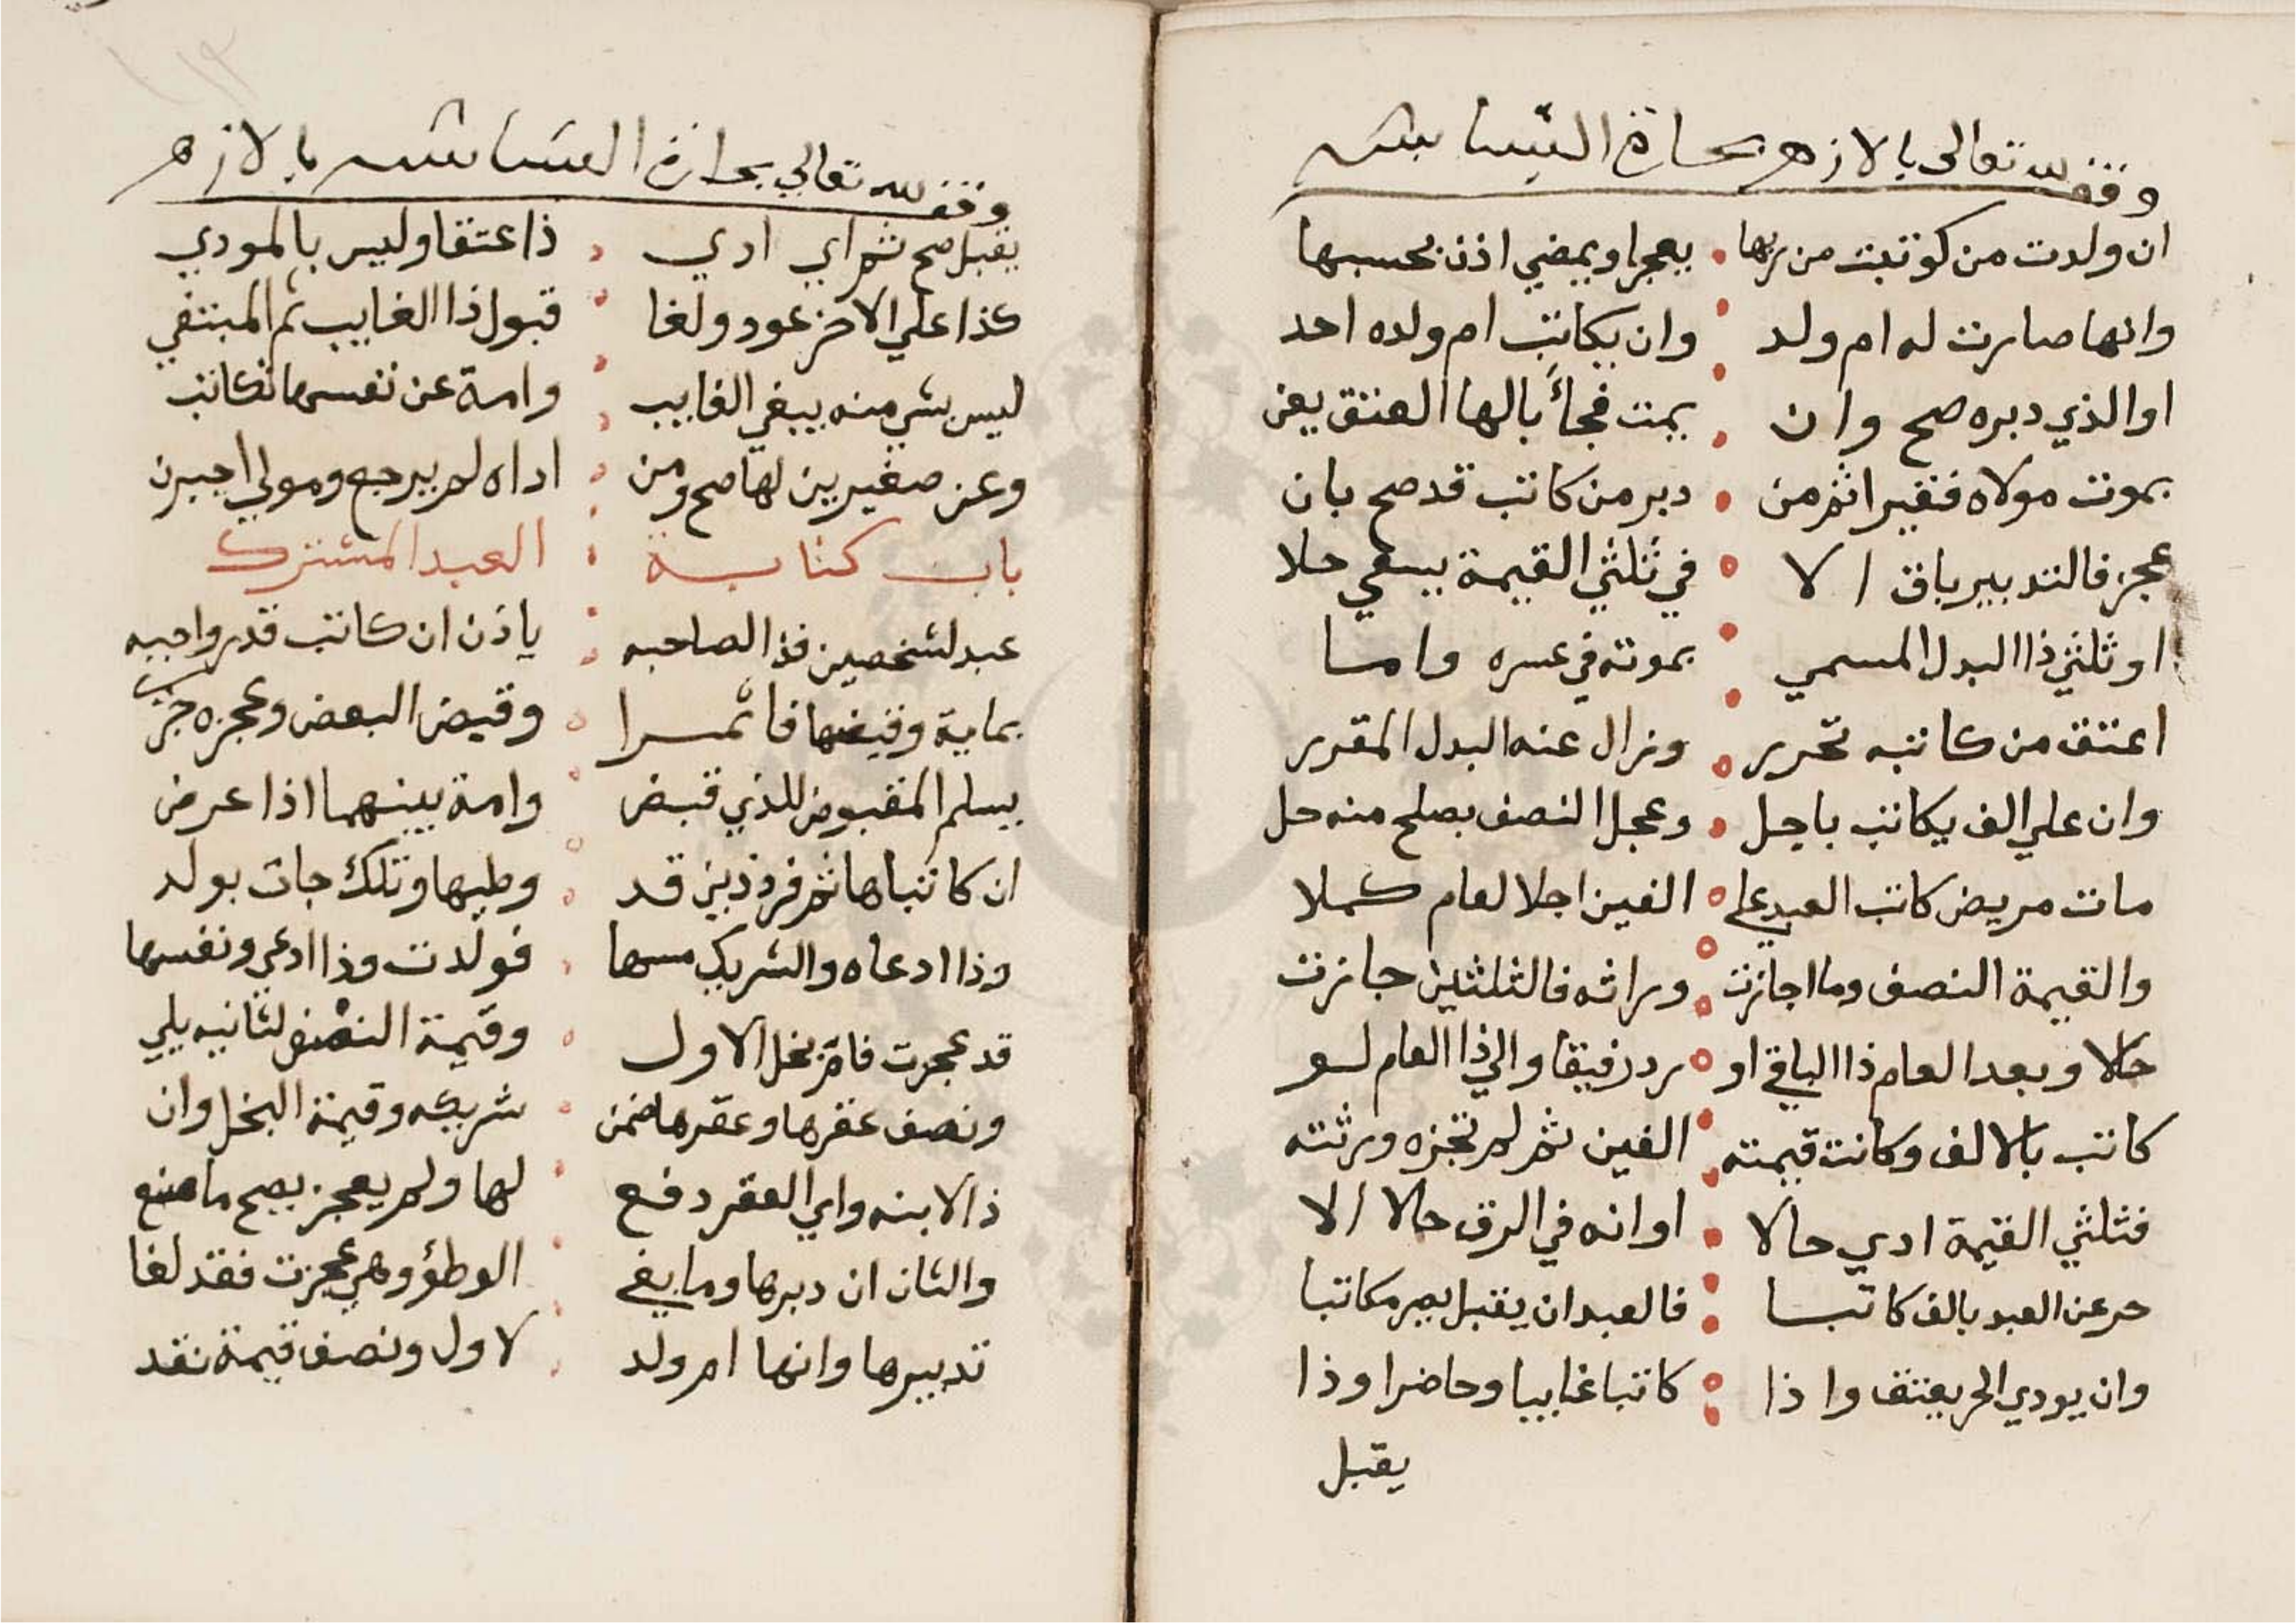 وقف لله تعالى بالازهر بحارة
ان ولدت من كوتبت من ربها • يعجزا ويمضي اذن بحسبها
وانها صارت له ام ولد • وان يكاتب ام ولده احد
او الذي دبره صح وان • يمت فجاً بالها العتق يعن
بموت مولاه فقيرا ثم من • دبر من كاتب قد صح بان
عجز فالتدبير باق الا • في ثلثي القيمة يسعي حلا
او ثلثي ذا البدل المسمي • بموته في عسره واما
اعتق من كاتبه تحرر • وزال عنه البدل المقرر
وان علي الف يكاتب باجل • وعجل النصف بصلح منه حل
مات مريض كاتب العبد علي • الفين اجلا لعام كملا
والقيمة النصف وما اجازت • وراثه فالثلثين جازت
حالا وبعد العام ذا الباقي او • رد رقيقا والي ذا العام لو
كاتب بالالف وكانت قيمته • الفين ثم لم تجزه ورثته
فثلثي القيمة ادي حالا • او انه في الرق حالا الا
حر عن العبد بالف كاتبا • فالعبد ان يقبل يصر مكاتبا
وان يودي الحر يعتق واذا • كاتبا غايبا وحاضرا وذا
يقبل
وقف لله تعالي بحارة بالازهر
يقبل صح ثم اي ادي • ذا عتقا وليس بالمودي
كذا علي الاخر عود ولغا • قبول ذا الغايب ثم المبتغي
ليس بشي منه يبغي الغايب • وامة عن نفسها تكاتب
وعن صغيرين لها صح ومن • اداه لم يرجع ومولي اجبرن
باب كتابة • العبد المشترك
عبد لشخصين فذا لصاحبه • ياذن ان كاتب قدر واجبه
بماية وقبضها فاتمرا • وقبض البعض وعجزه جري
يسلم المقبوض للذي قبض • وامة بينهما اذا عرض
ان كاتباها ثم فرد ذين قد • وطيها وتلك جات بولد
وذا ادعاه والشريك مسها • فولدت وذا ادعي ونفسها
قد عجزت فام نجل الاول • وقيمة النصف لثانيه يلي
ونصف عقرها وعقرها ضمن • شريكه وقيمة النجل وان
ذا لابنه واي العقر دفع • لها ولم يعجز يصح ما صنع
والثان ان دبرها وما بغي • الوطؤ وهي عجزت فقد لغا
تدبيرها وانها ام ولد • لاول ونصف قيمة نقد